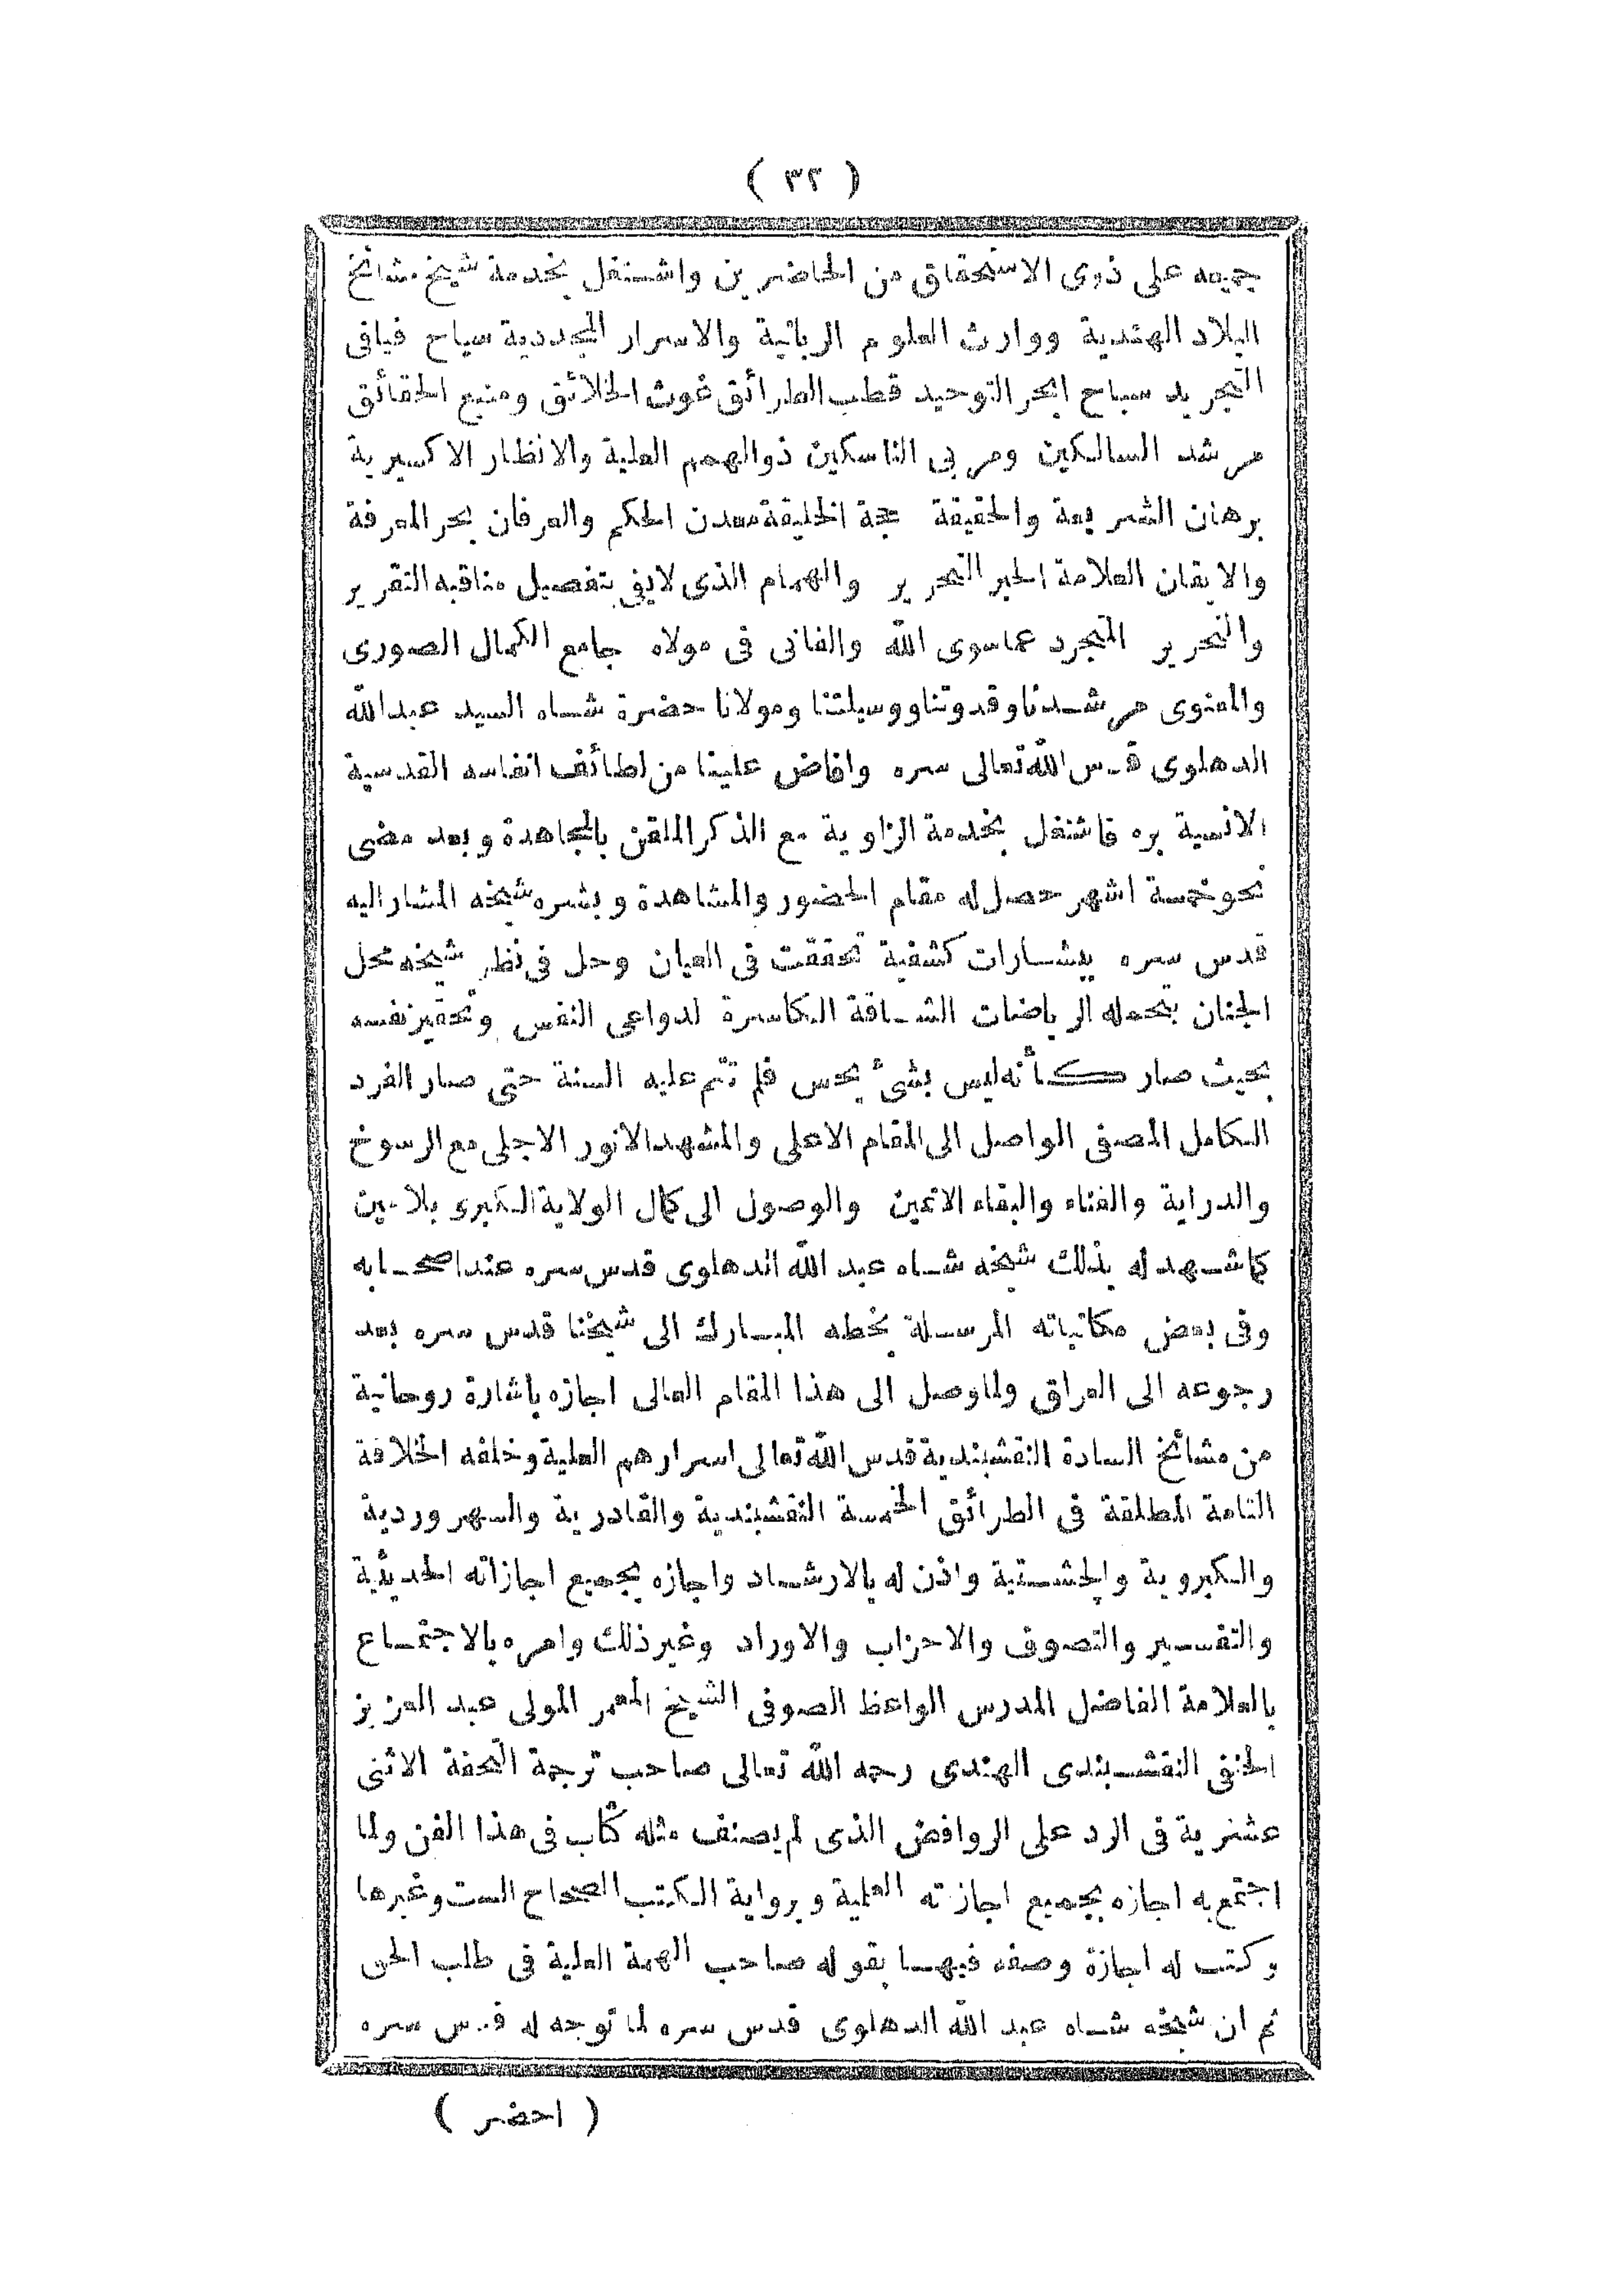 ( ٣٢ )
جميعه على ذوى الاستحقاق من الحاضرين واشتغل بخدمة شيخ مشائخ
البلاد الهندية ووارث العلوم الربانية والاسرار المجددية سياح فيافى
التجريد سباح ابحر التوحيد قطب الطرائق غوث الخلائق ومنبع الحقائق
مرشد السالكين ومربى الناسكين ذوالهمم العلية والانظار الاكسيرية
برهان الشريعة والحقيقة حجة الخليقة معدن الحكم والعرفان بحر المعرفة
والايقان العلامة الحبر النحرير والهمام الذى لايفى بتفصيل مناقبه التقرير
والتحرير المتجرد عماسوى الله والفانى فى مولاه جامع الكمال الصورى
والمعنوى مرشدنا وقدوتنا ووسيلتنا ومولانا حضرة شاه السيد عبدالله
الدهلوى قدس الله تعالى سره وافاض علينا من لطائف انفاسه القدسية
الانسية بره فاشتغل بخدمة الزاوية مع الذكر الملقن بالمجاهدة وبعد مضى
نحو خمسة اشهر حصل له مقام الحضور والمشاهدة وبشره شيخه المشار اليه
قدس سره ببشارات كشفية تحققت فى العيان وحل فى نظر شيخه محل
الجنان بتحمله الرياضات الشاقة الكاسرة لدواعى النفس وتحقير نفسه
بحيث صار كأنه ليس بشئ يحس فلم تتم عليه السنة حتى صار الفرد
الكامل المصفى الواصل الى المقام الاعلى والمشهد الانور الاجلى مع الرسوخ
والدراية والفناء والبقاء الاتمين والوصول الى كمال الولاية الكبرى بلا مين
كماشهد له بذلك شيخه شاه عبد الله الدهلوى قدس سره عند اصحابه
وفى بعض مكاتباته المرسلة بخطه المبارك الى شيخنا قدس سره بعد
رجوعه الى العراق ولما وصل الى هذا المقام العالى اجازه باشارة روحانية
من مشائخ السادة النقشبندية قدس الله تعالى اسرارهم العلية وخلفه الخلافة
التامة المطلقة فى الطرائق الخمسة النقشبندية والقادرية والسهروردية
والكبروية والچشتية واذن له بالارشاد واجازه بجميع اجازاته الحديثية
والتفسير والتصوف والاحزاب والاوراد وغير ذلك وامره بالاجتماع
بالعلامة الفاضل المدرس الواعظ الصوفى الشيخ المعمر المولى عبد العزيز
الحنفى النقشبندى الهندى رحمه الله تعالى صاحب ترجمة التحفة الاثنى
عشرية فى الرد على الروافض الذى لم يصنف مثله كتاب فى هذا الفن ولما
اجتمع به اجازه بجميع اجازته العلية وبرواية الكتب الصحاح الست وغيرها
وكتب له اجازة وصفه فيها بقوله صاحب الهمة العلية فى طلب الحق
ثم ان شيخه شاه عبد الله الدهلوى قدس سره لما توجه له قدس سره
( احضر )